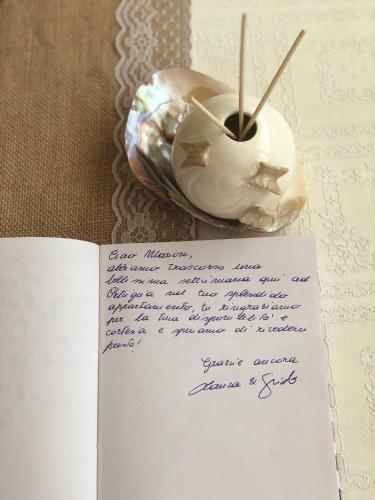 Ciao Marion,
abbiamo trascorso una
bellissima settimana qui ad
Ortigia nel tuo splendido
appartamento, ti ringraziamo
per la tua disponibilità e
cortesia e speriamo di rivederci
presto!
Grazie ancora
Laura e Guido